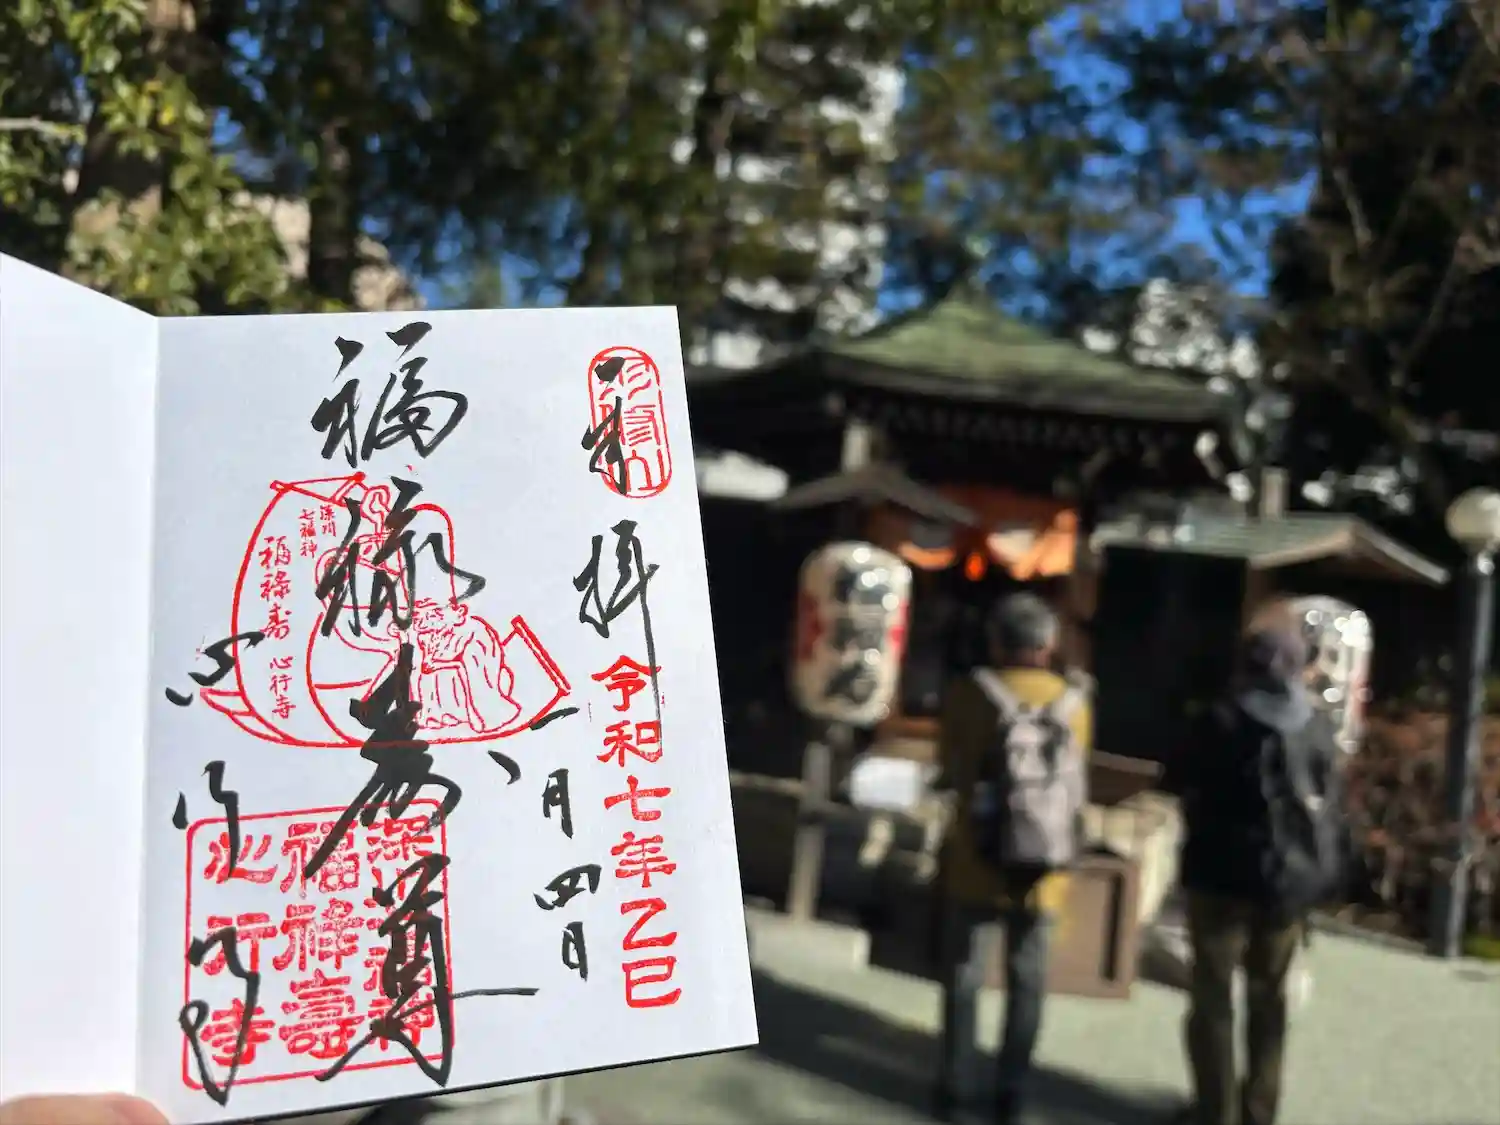 奉拝
令和七年乙巳
一月四日
福禄寿尊
心行寺
深川
七福神
福禄寿
心行寺
深川七福神
福禄寿
心行寺